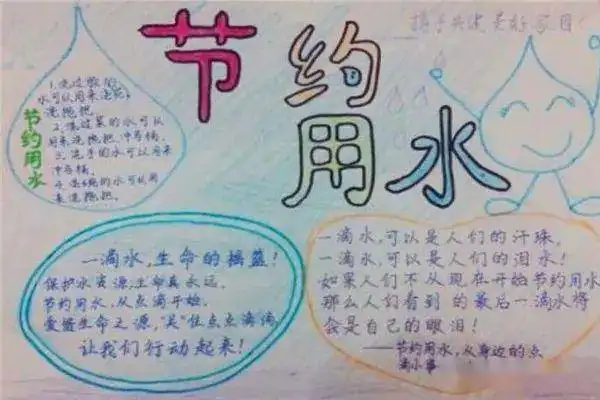 节约用水
携手共建美好家园!
节约用水
1.洗过脸的
水可以用来浇花,
洗拖把。
2.洗过菜的水可以
用来洗拖把、冲马桶。
3.洗手的水可以用来
冲马桶。
的水可以用
来洗拖把。
一滴水,生命的摇篮!
保护水资源,生命真永远。
节约用水,从点滴开始。
爱惜生命之源,“关”住点点滴滴
让我们行动起来!
一滴水,可以是人们的汗珠,
一滴水,可以是人们的泪水!
如果人们不从现在开始节约用水
那么人们看到的最后一滴水将
会是自己的眼泪!
——节约用水,从身边的点
滴小事